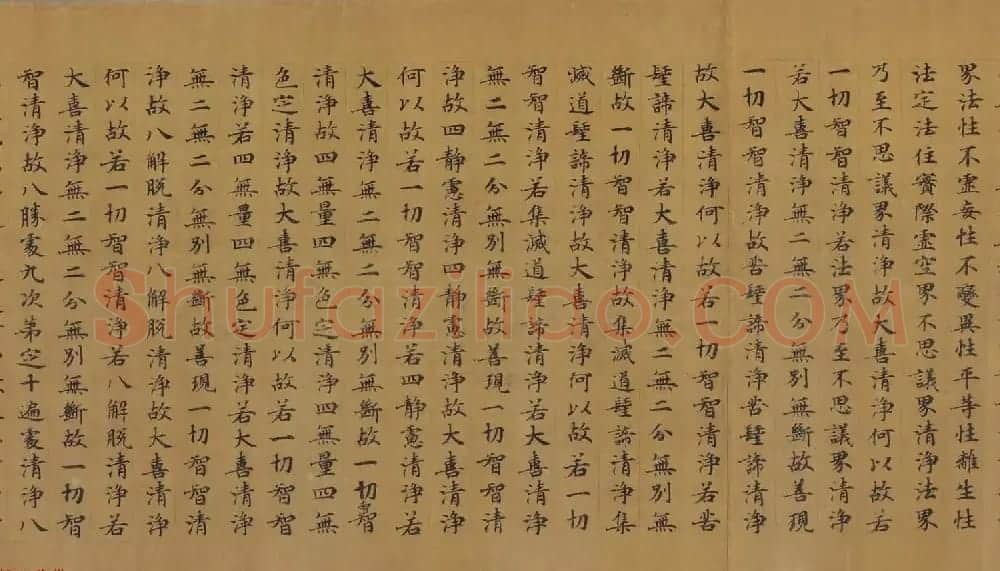 界法性不虛妄性不變異性平等性離生性
法定法住實際虛空界不思議界清淨法界
乃至不思議界清淨故大喜清淨何以故若
一切智智清淨若法界乃至不思議界清淨
若大喜清淨無二無二分無別無斷故善現
一切智智清淨故苦聖諦清淨苦聖諦清淨
故大喜清淨何以故若一切智智清淨若苦
聖諦清淨若大喜清淨無二無二分無別無
斷故一切智智清淨故集滅道聖諦清淨集
滅道聖諦清淨故大喜清淨何以故若一切
智智清淨若集滅道聖諦清淨若大喜清淨
無二無二分無別無斷故善現一切智智清
淨故四靜慮清淨四靜慮清淨故大喜清淨
何以故若一切智智清淨若四靜慮清淨若
大喜清淨無二無二分無別無斷故一切智智
清淨故四無量四無色定清淨四無量四無
色定清淨故大喜清淨何以故若一切智智
清淨若四無量四無色定清淨若大喜清淨
無二無二分無別無斷故善現一切智智清
淨故八解脫清淨八解脫清淨故大喜清淨
何以故若一切智智清淨若八解脫清淨若
大喜清淨無二無二分無別無斷故一切智
智清淨故八勝處九次第定十遍處清淨八
Shufaziliao.COM